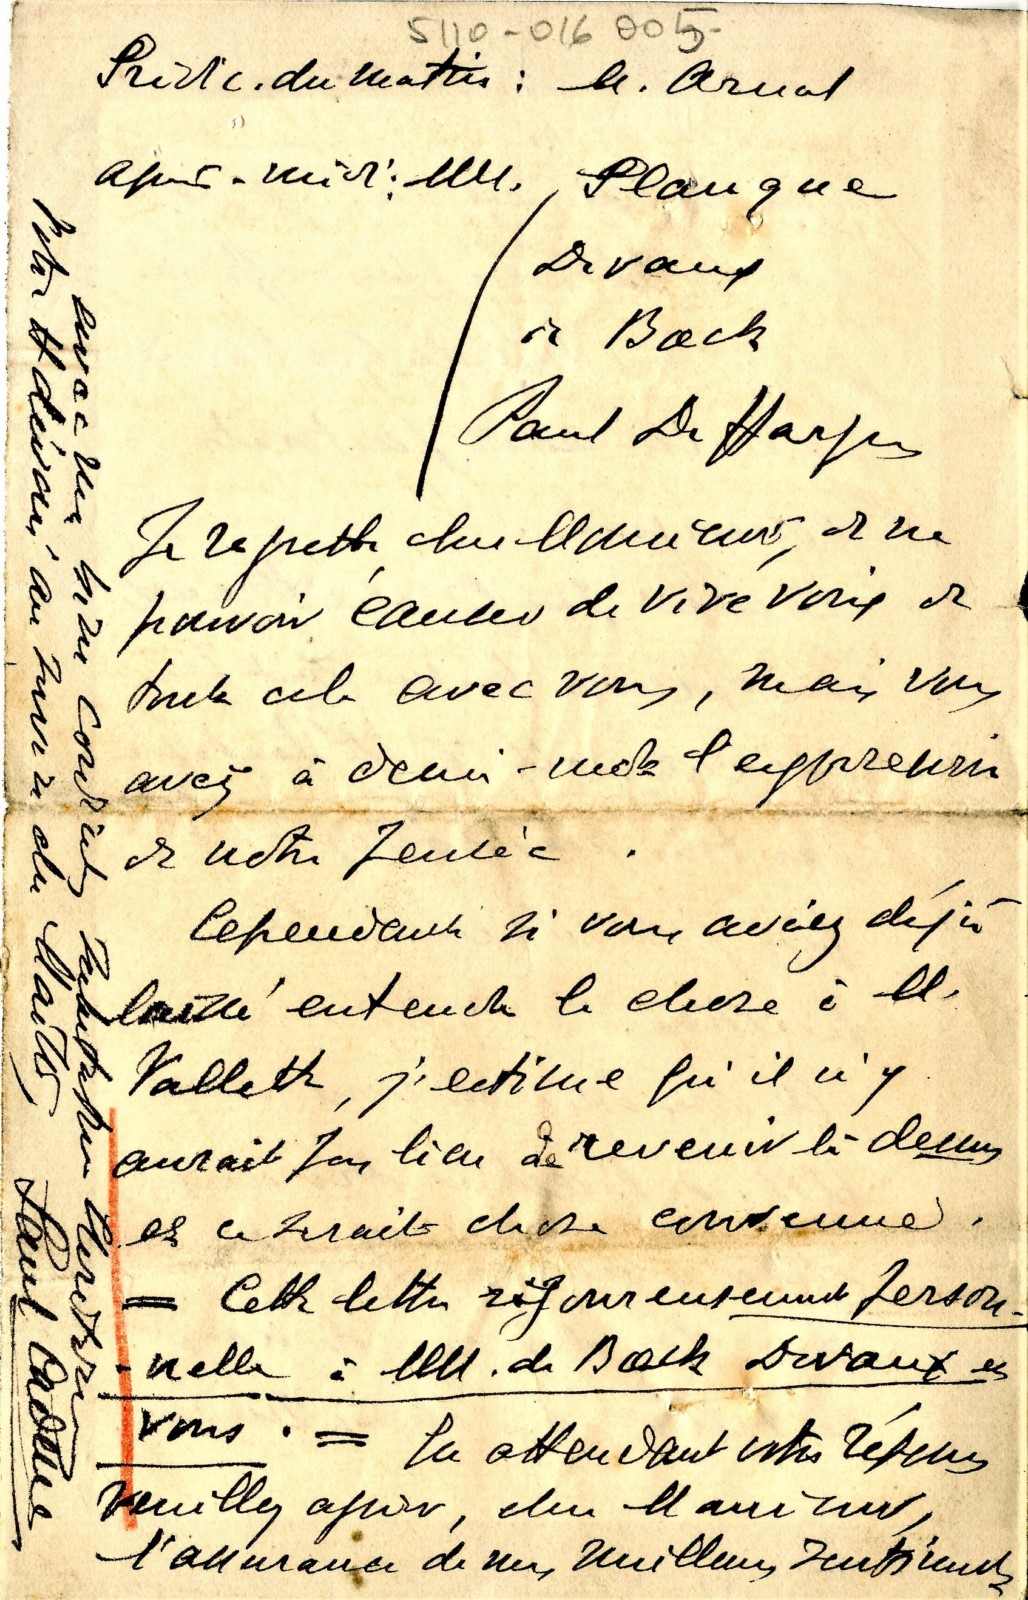 5110-016 005
Prédic. du matin : M. Arnal
après-midi : MM. Planque
Devaux
de Back
Paul De Harpen
Je regrette, cher Monsieur, de ne
pouvoir causer de vive voix de
toute cela avec vous, mais vous
avez à demi-mots l'expression
de notre pensée.
Cependant si vous aviez déjà
laissé entendre la chose à M.
Vallette, j'estime qu'il n'y
aurait pas lieu de revenir là-dessus
et ce serait chose convenue.
= Cette lettre rigoureusement person-
nelle à MM. de Back Devaux et
vous. = En attendant votre réponse
veuillez agréer, cher Monsieur,
l'assurance de mes meilleurs sentiments
avec une cordiale
Votre dévoué au service du Maître,
Paul Cadene